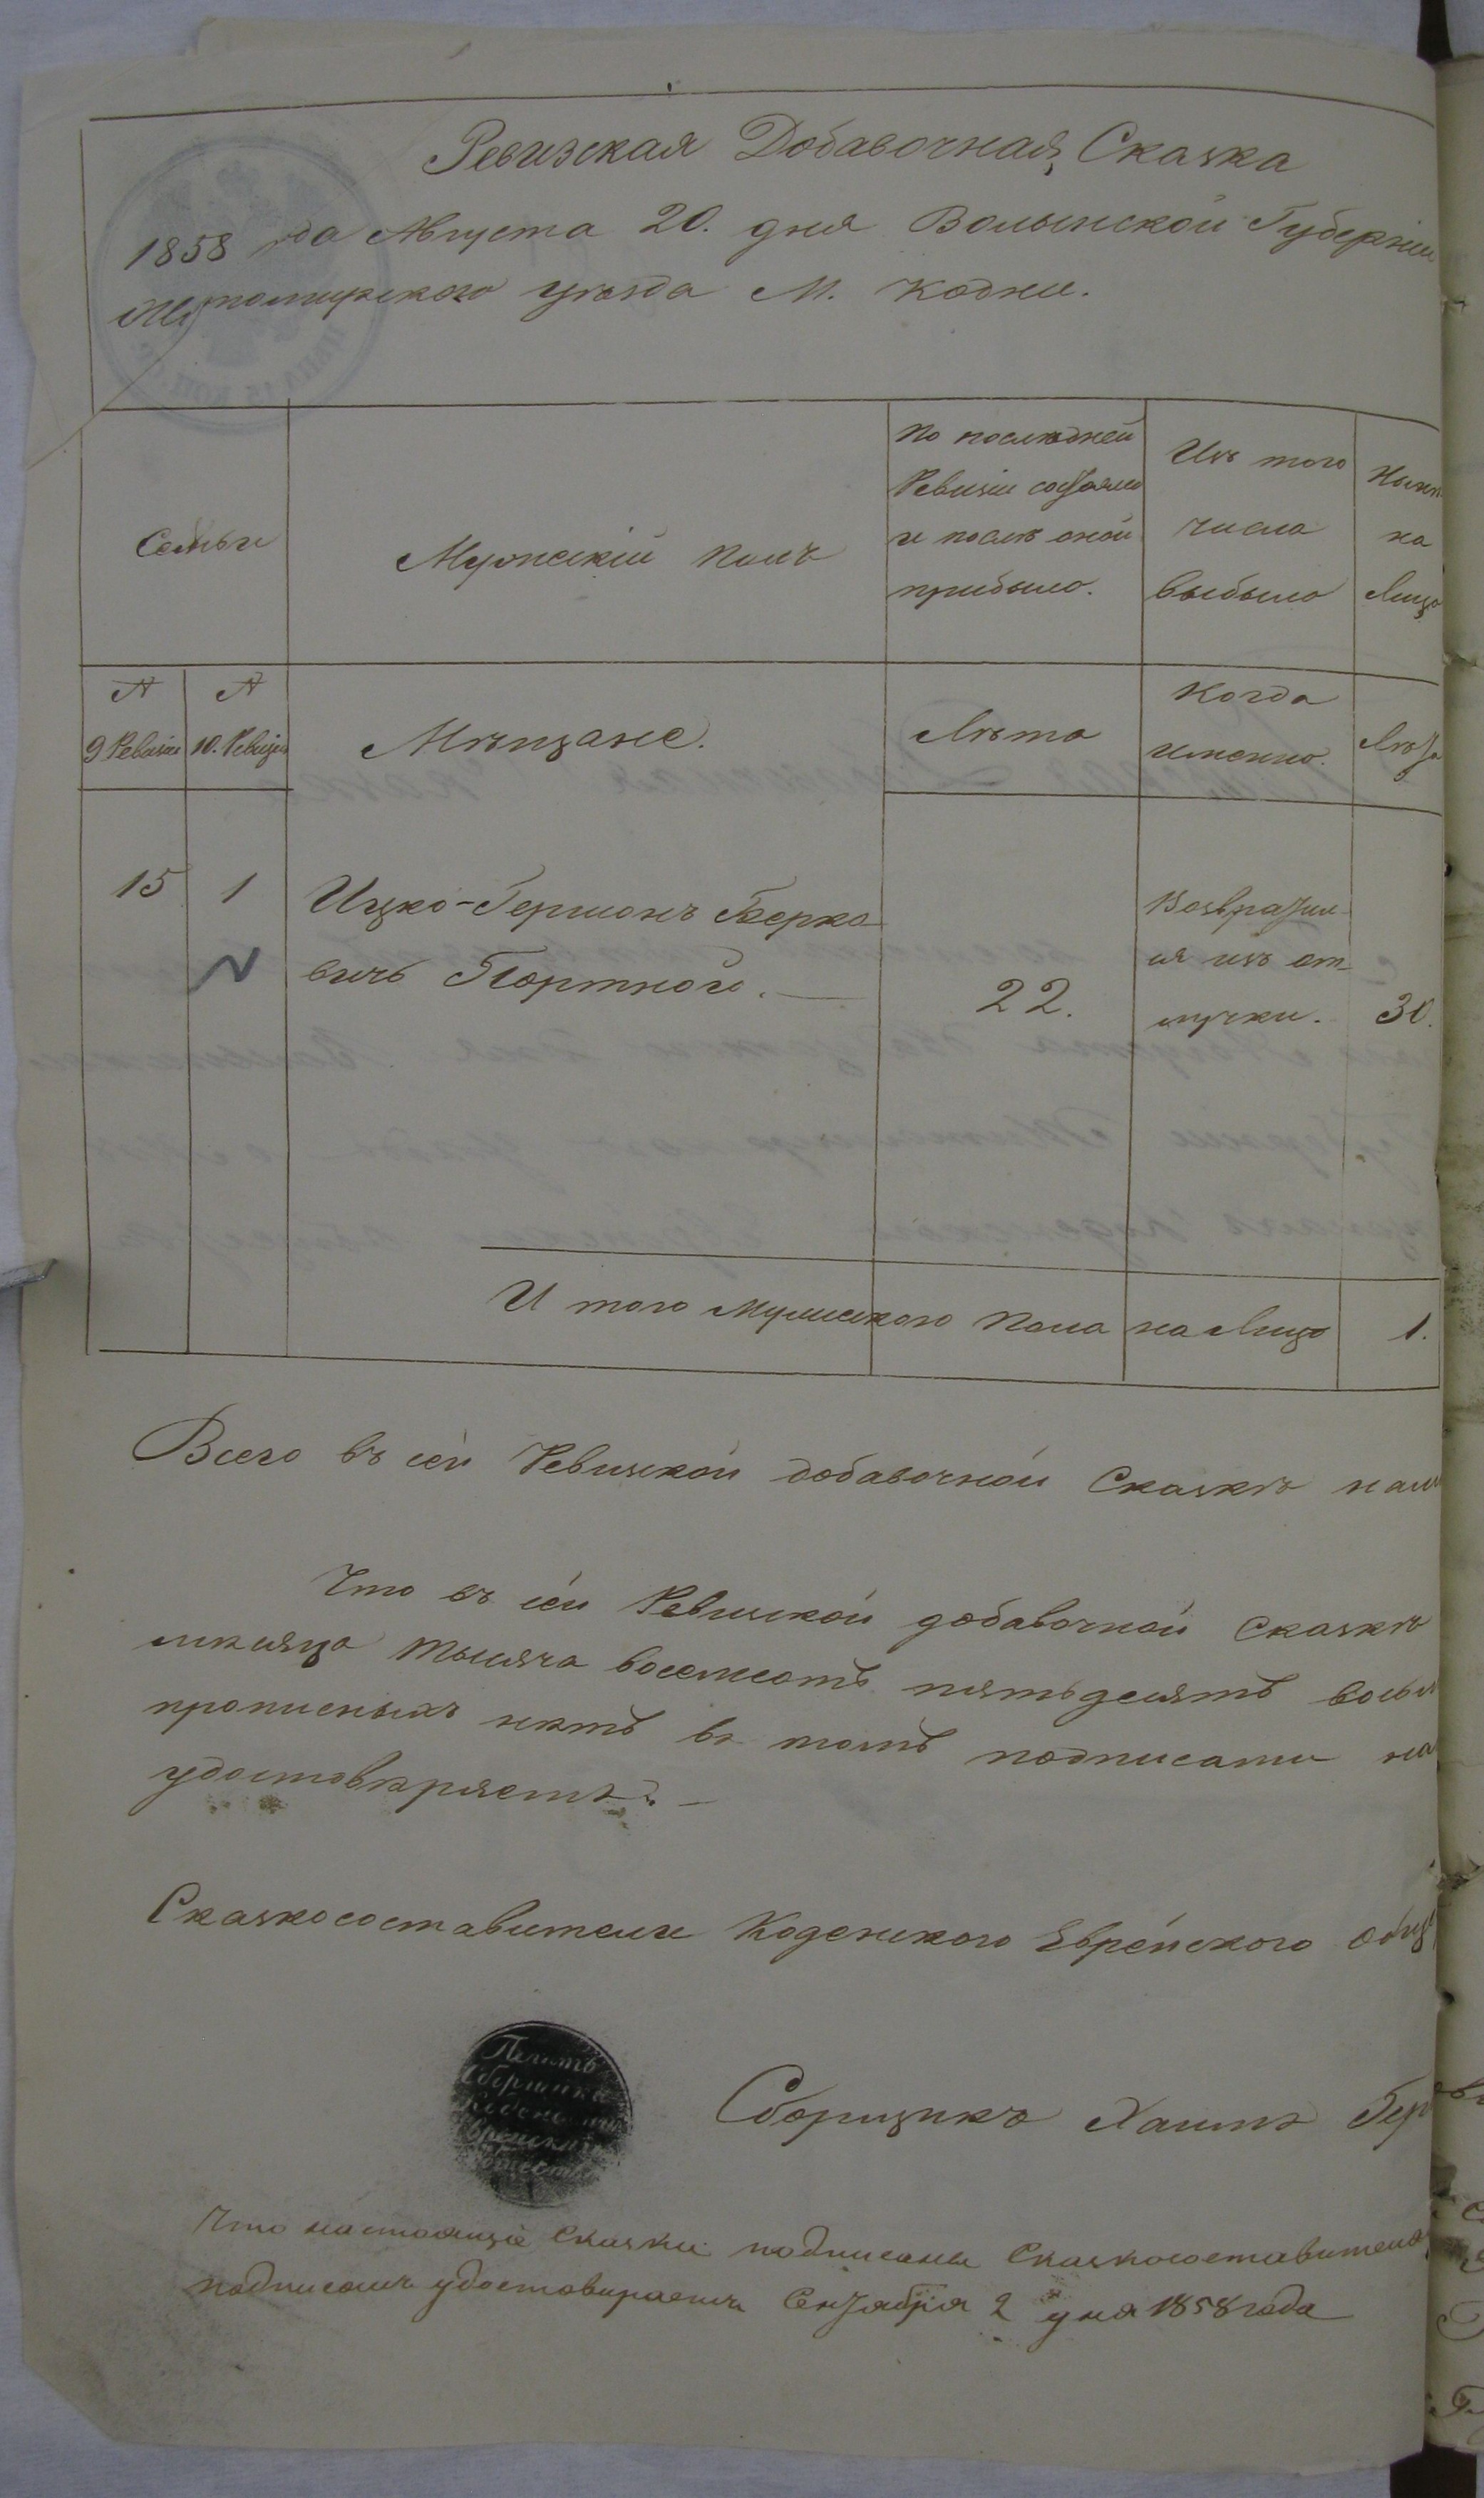 Ревизская Добавочная Сказка
1858 года Августа 20. дня Волынской Губерніи
Житомирского уѣзда М. Кодни.
Семьи
Мужескій полъ
По послѣдней
Ревизіи состояло
и послѣ оной
прибыло.
Изъ того
числа
выбыло
Нынѣ
на
Лицо
№
9 Ревизіи
№
10. Ревизіи
Мѣщане.
Лѣта
Когда
именно.
Лѣта
15 1 Ицко-Гершонъ Берко
вичь Портного.
22.
Возвратил
ся изъ от-
лучки.
30.
И того Мужеского пола на Лицо 1.
Всего въ сей Ревизской добавочной Сказкѣ
Что въ сей Ревизской добавочной Сказкѣ
мѣсяца тысяча восемсотъ пятьдесятъ
прописныхъ нѣтъ въ томъ подписами
удостовѣряетъ.
Сказкосоставители Коденского Еврейского
Печать
Сборщика
Сборщикъ Хаимъ
Что настоящіе Сказки подписаны
подписомъ удостовѣряемъ Сентября 2 дня 1858 года